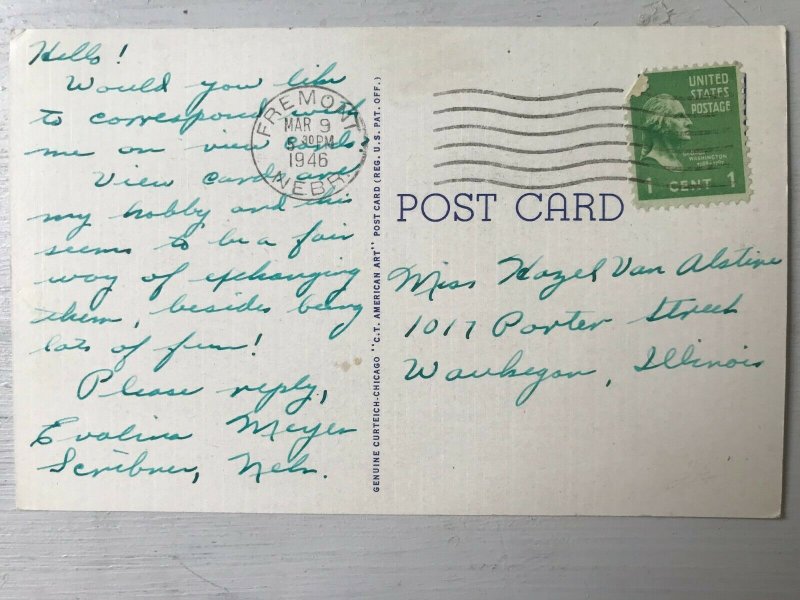 Hello!
Would you like
to correspond with
me on view cards?
View cards are
my hobby and this
seems to be a fair
way of exchanging
them, besides being
lots of fun!
Please reply,
Evalina Meyer
Scribner, Nebr.
GENUINE CURTEICH-CHICAGO "C.T. AMERICAN ART" POST CARD (REG. U.S. PAT. OFF.)
FREMONT
MAR 9
30 PM
1946
NEBR.
UNITED
STATES
POSTAGE
WASHINGTON
1 CENT 1
POST CARD
Miss Hazel Van Alstine
1017 Porter Street
Waukegan, Illinois